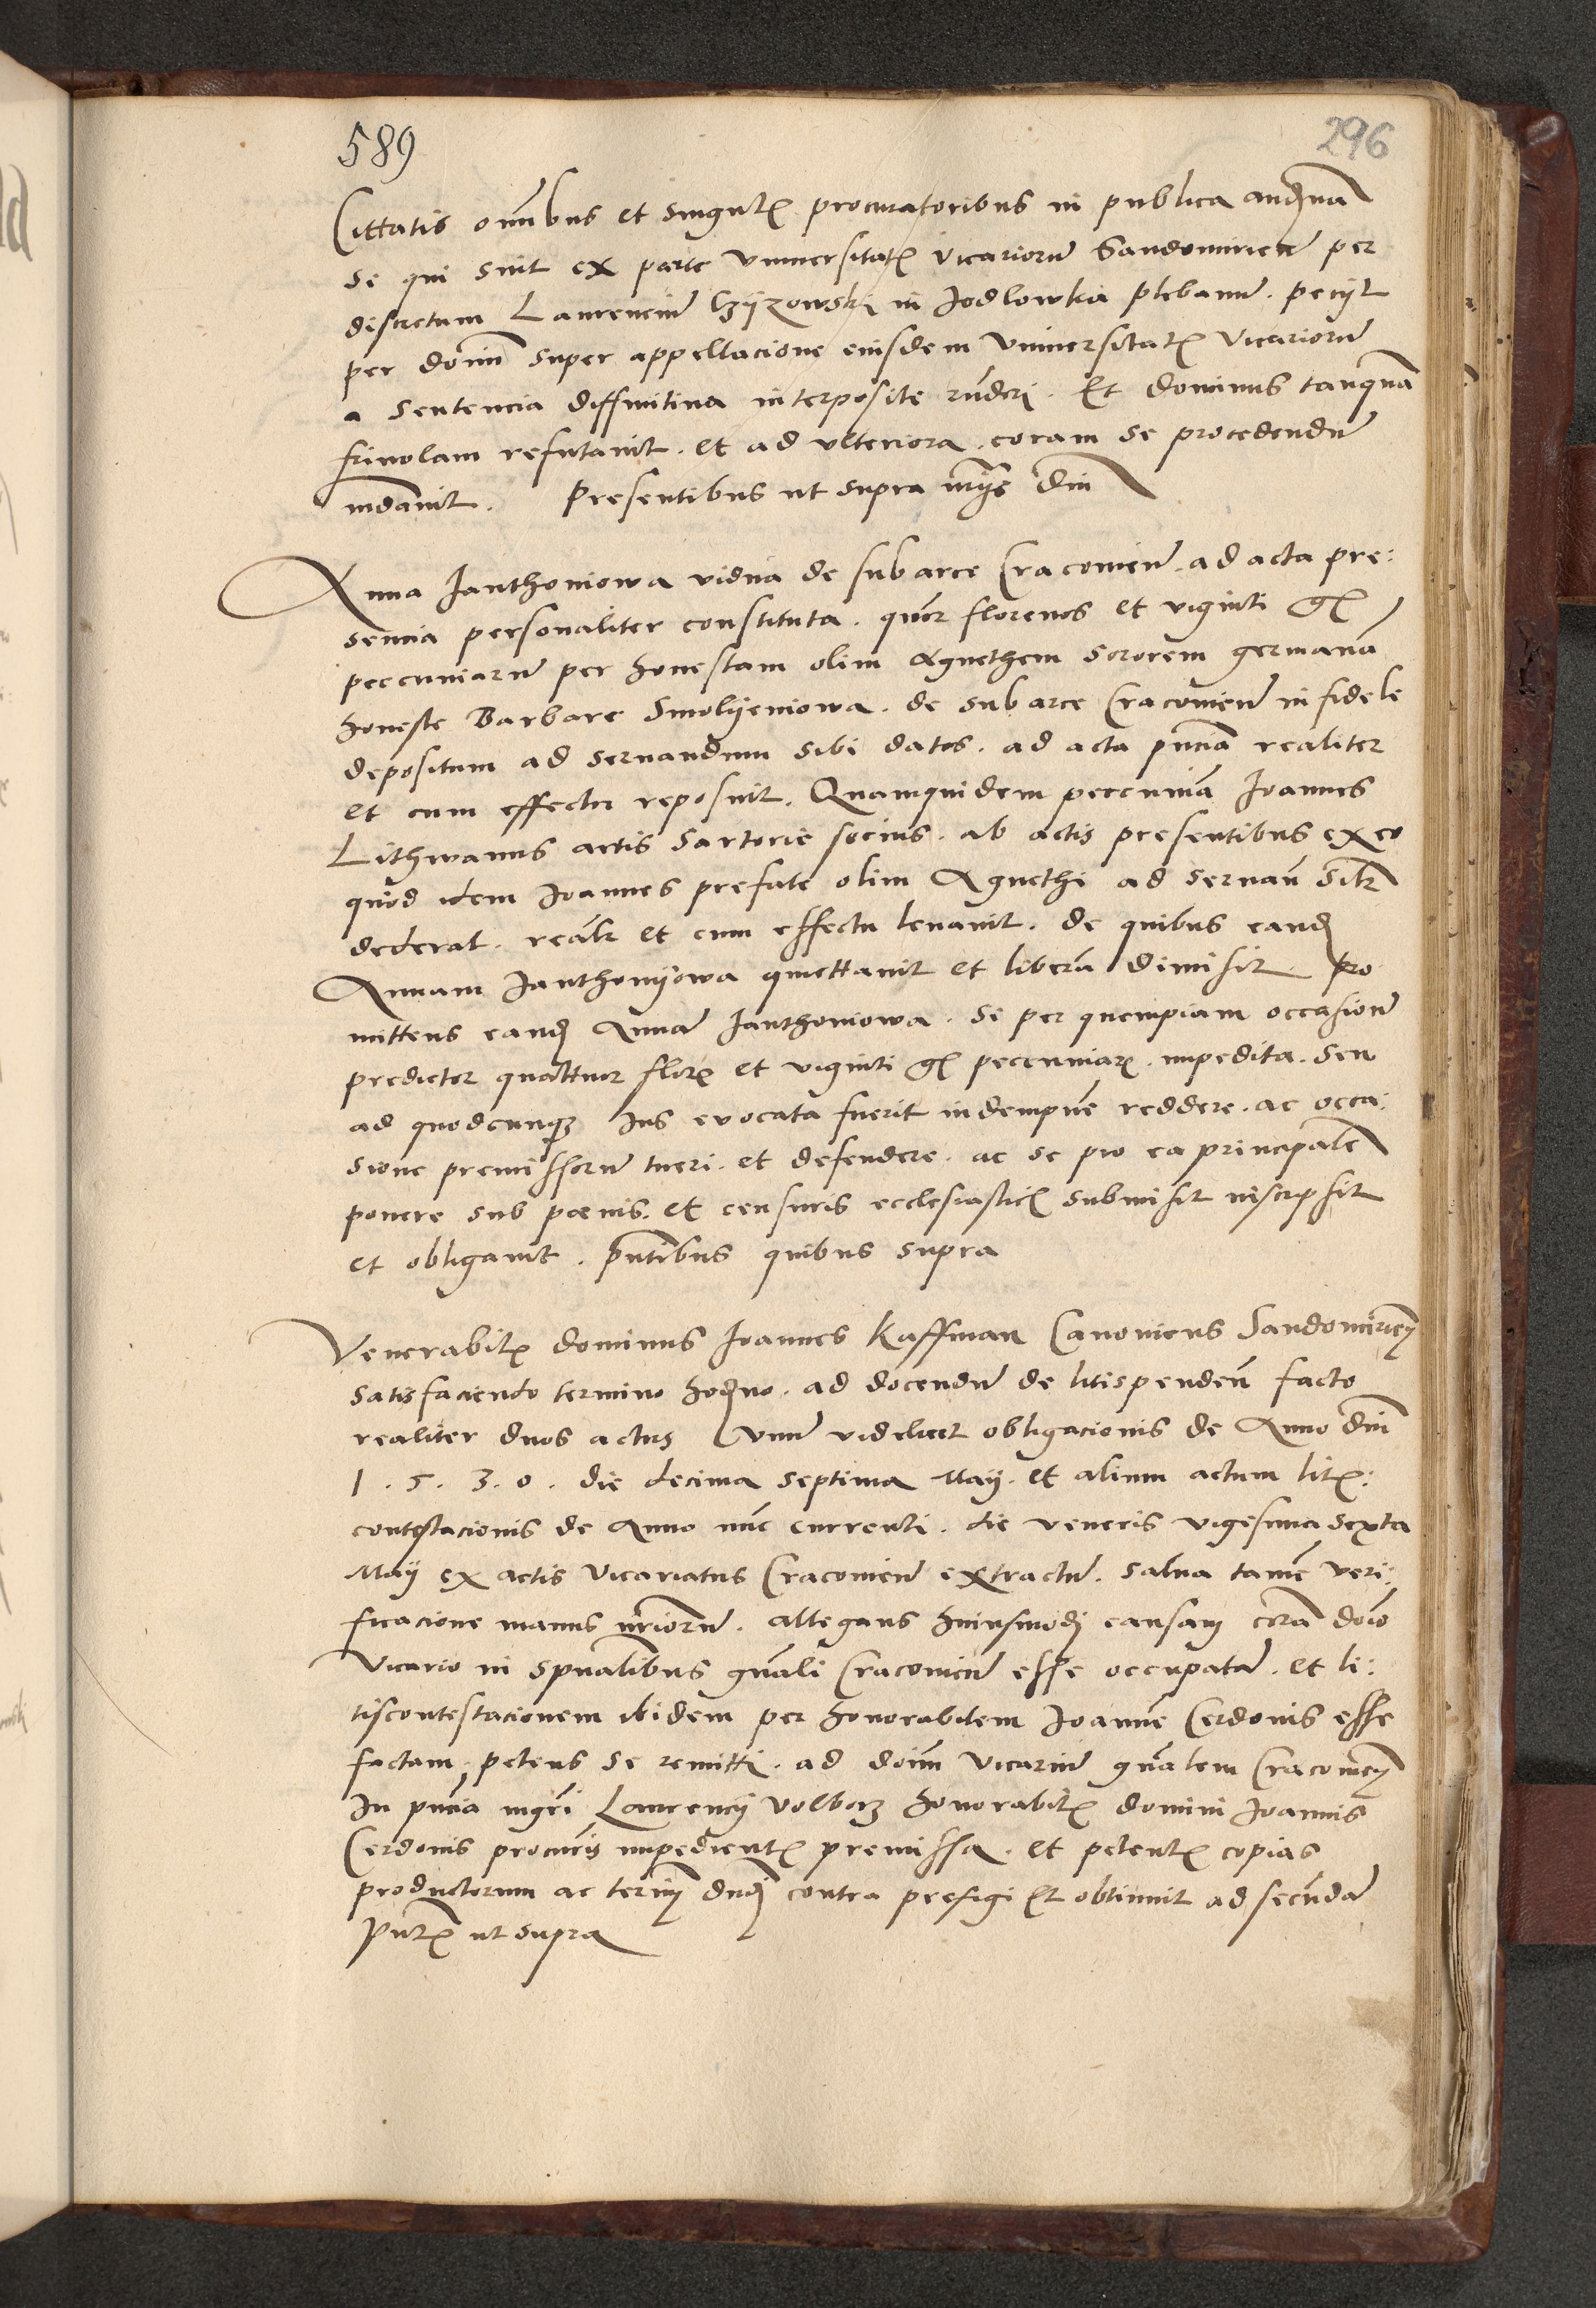 589
296
Cittatis omibus et singulis procuratoribus in publica audiena
se qui sint ex parte Universitatis vicariorum Sandomirien per
discretum Laurencium Czyzowski in Jodlowka plebanum . peciit
per dominum super appellacione eiusdem Universitatis vicariorum
a sentencia diffinitiva interposite rnderi . Et dominus tanquam
frivolam refutavit . et ad ulteriora . coram se procedendum
mdavit . Presentibus ut supra dni
Anna Janthoniowa vidua de subarce Cracovien . ad acta pre:
sencia personaliter constituta . quatuor florenos et viginti gr
pecuniarum per honestam olim Agnethem sororem germanam
honeste Barbare Smolyeniowa . de subarce Cracovien in fidele
depositum ad servandum sibi datos . ad acta pncia realiter
et cum effectu reposuit . Quamquidem pecuniam Joannes
Lithwanus artis sartorie socius . ab actis presentibus ex eo
quod idem Joannes prefate olim Agnethi ad servan silr
dederat . realr et cum effectu levavit . de quibus eand
Annam Janthonyowa quittavit et liberam dimisit . pro
mittens eand Annam Janthoniowa . se per quempiam occasione
predictor quattuor flor et viginti gr pecuniar . impedita . seu
ad quodcunque Jus evocata fuerit indempnem reddere . ac occa:
sione premissorum tueri . et defendere . ac se pro ea principalem
ponere sub poenis . et censuris ecclesiasticis submisit inscripsit
et obligavit . pntibus quibus supra
Venerabilis dominus Joannes Kaffman Canonicus Sandomirien
satisfaciendo termino hodierno . ad docendum de litispenden facto
realiter duos actus unum videlicet obligacionis de Anno dni
1 . 5 . 3 . 0 . die decima septima May . et alium actum litis:
contestacionis de Anno nunc currenti . die veneris vigesima sexta
May ex actis vicariatus Cracovien extractum . salva tamen veri:
ficacione manus notariorum . allegans huiusmodi causam coram domino
vicario in spualibus gnali Cracovien esse occupatam . et li:
tiscontestacionem ibidem per honorabilem Joannem Cerdonis esse
factam , petens se remitti . ad dominum vicarium gnalem Cracovien
In pncia mgri Laurency Volborz honorabilis domini Joannis
Cerdonis procuris impedientis premissa . et petentis copias
productorum ac termin dnd contra prefigi Et obtinuit ad secundam
Pntibus ut supra